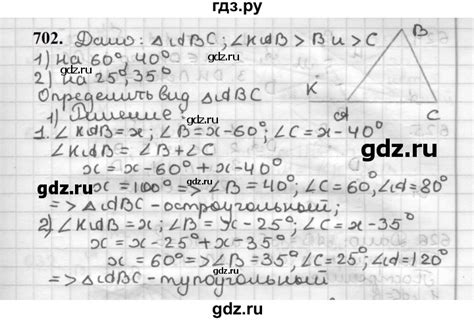 гдз.ру
702. Дано: △ABC; ∠KAB > B и > C
1) на 60°, 40°
2) на 25°, 35°
Определить вид △ABC
B
K
A
C
1) Решение:
1. ∠KAB = x; ∠B = x-60°; ∠C = x-40°
∠KAB = ∠B + ∠C
x = x-60° + x-40°
x = 100° => ∠B = 40°; ∠C = 60°, ∠A = 80°
=> △ABC - остроугольный;
2) ∠KAB = x; ∠B = x-25°; ∠C = x-35°
x = x-25° + x-35°
x = 60° => ∠B = 35°, ∠C = 25°; ∠A = 120°
=> △ABC - тупоугольный
gdz.ru
gdz.ru
gdz.ru